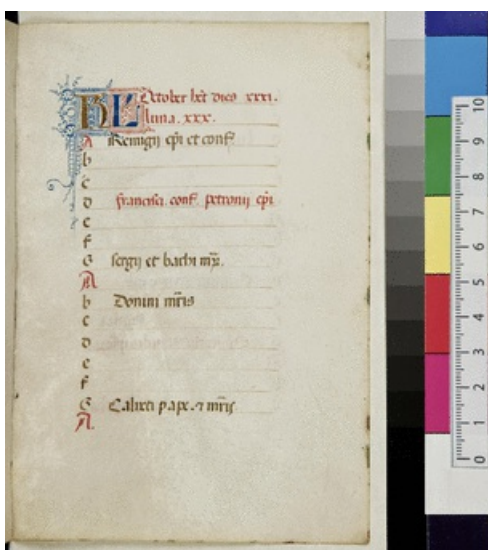 KL October het dies xxxi.
Luna. xxx.
A Remigii epi et conf.
b
c
d francisci. conf. petronii epi
e
f
G sergii et bachi mr̄.
A
b Donini mr̄is
c
d
e
f
G Calixti pape. ⁊ mr̄is
A.
0 1 2 3 4 5 6 7 8 9 10